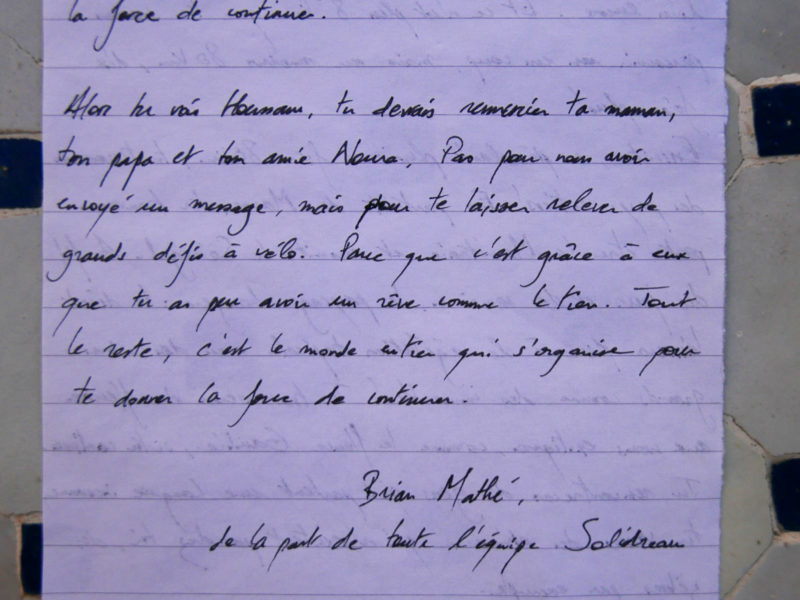 la force de continuer.
Alors tu vois Houssam, tu devrais remercier ta maman,
ton papa et ton amie Noura. Pas pour nous avoir
envoyé un message, mais pour te laisser relever de
grands défis à vélo. Parce que c'est grâce à eux
que tu as pu avoir un rêve comme le tien. Tout
le reste, c'est le monde entier qui s'organise pour
te donner la force de continuer.
Brian Mathé,
de la part de toute l'équipe Solidreau